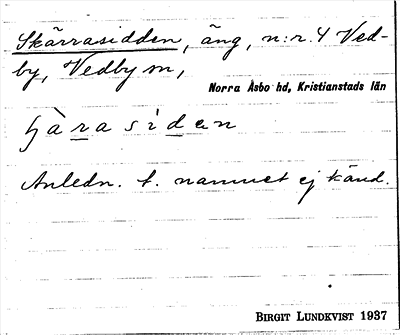 Skärrasidden, äng, n:r 4 Ved-
by, Vedby sn,
Norra Åsbo hd, Kristianstads län
Anledn. t. namnet ej känd.
BIRGIT LUNDKVIST 1937